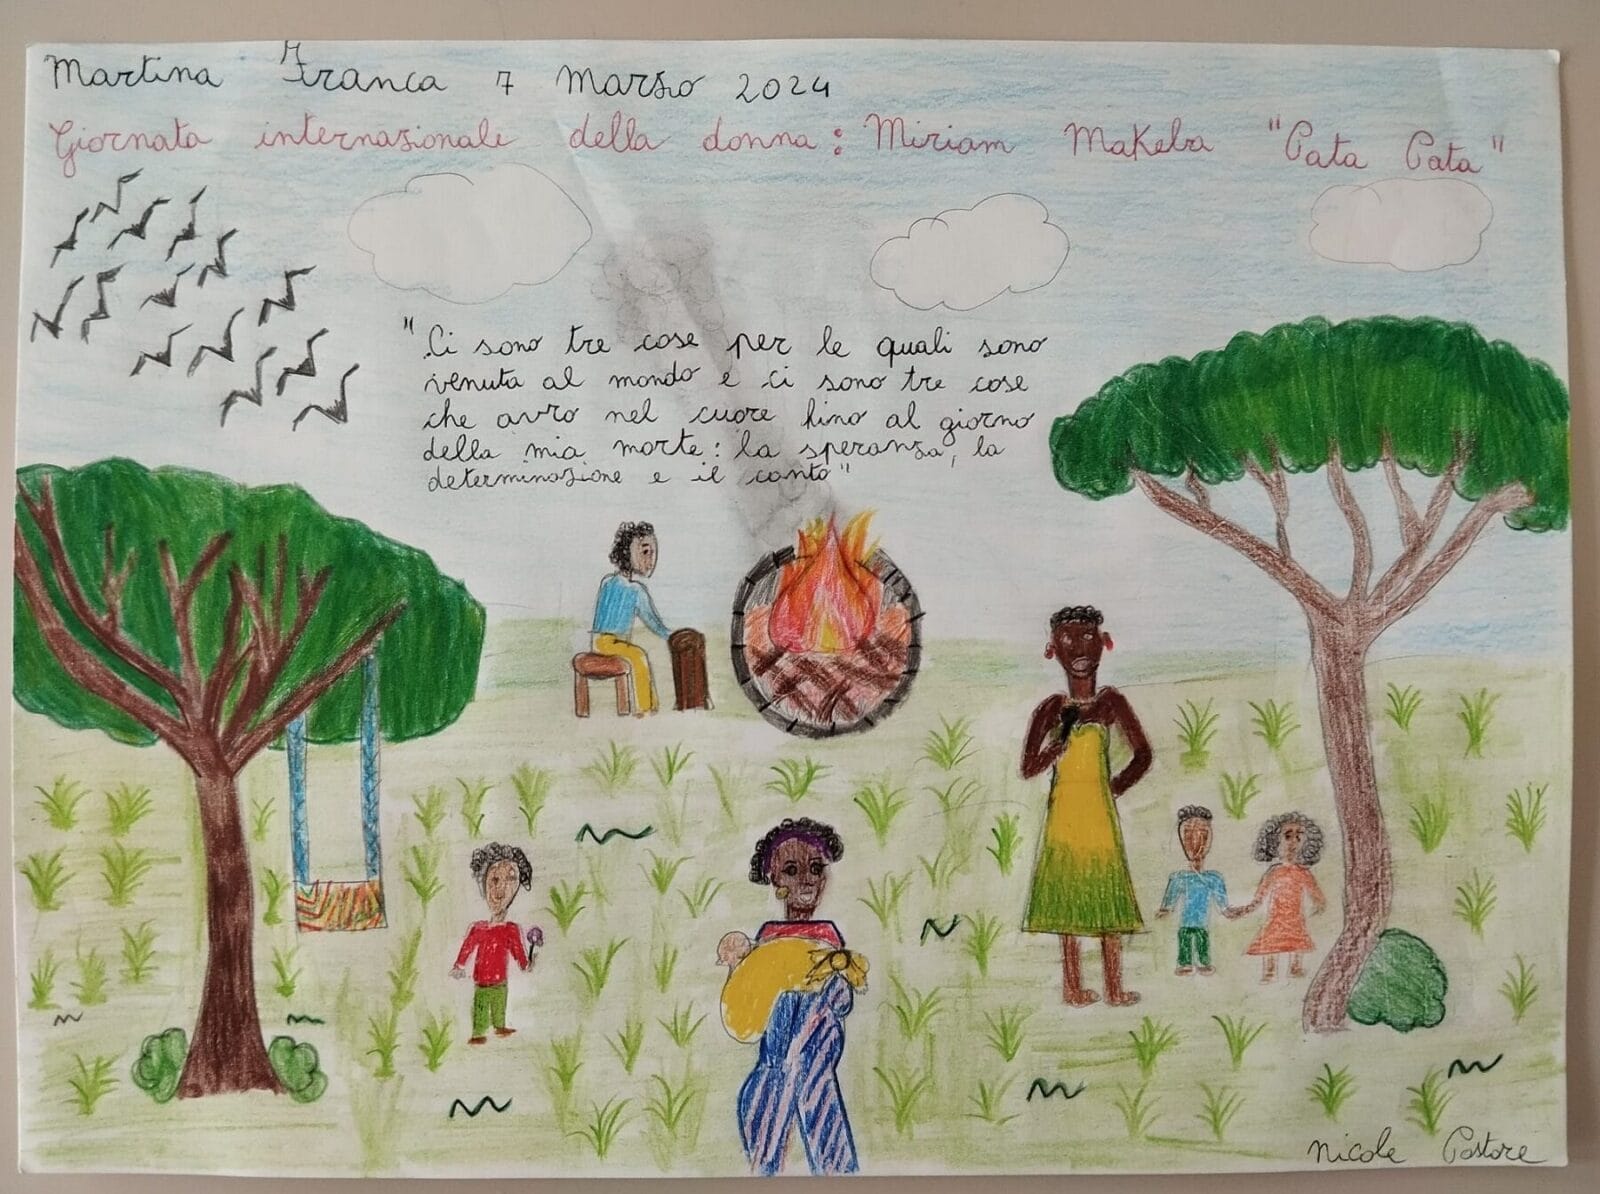 Martina Franca 7 Marzo 2024
Giornata internazionale della donna: Miriam Makeba "Pata Pata"
"Ci sono tre cose per le quali sono
venuta al mondo e ci sono tre cose
che avrò nel cuore fino al giorno
della mia morte: la speranza, la
determinazione e il canto"
Nicole Pastore